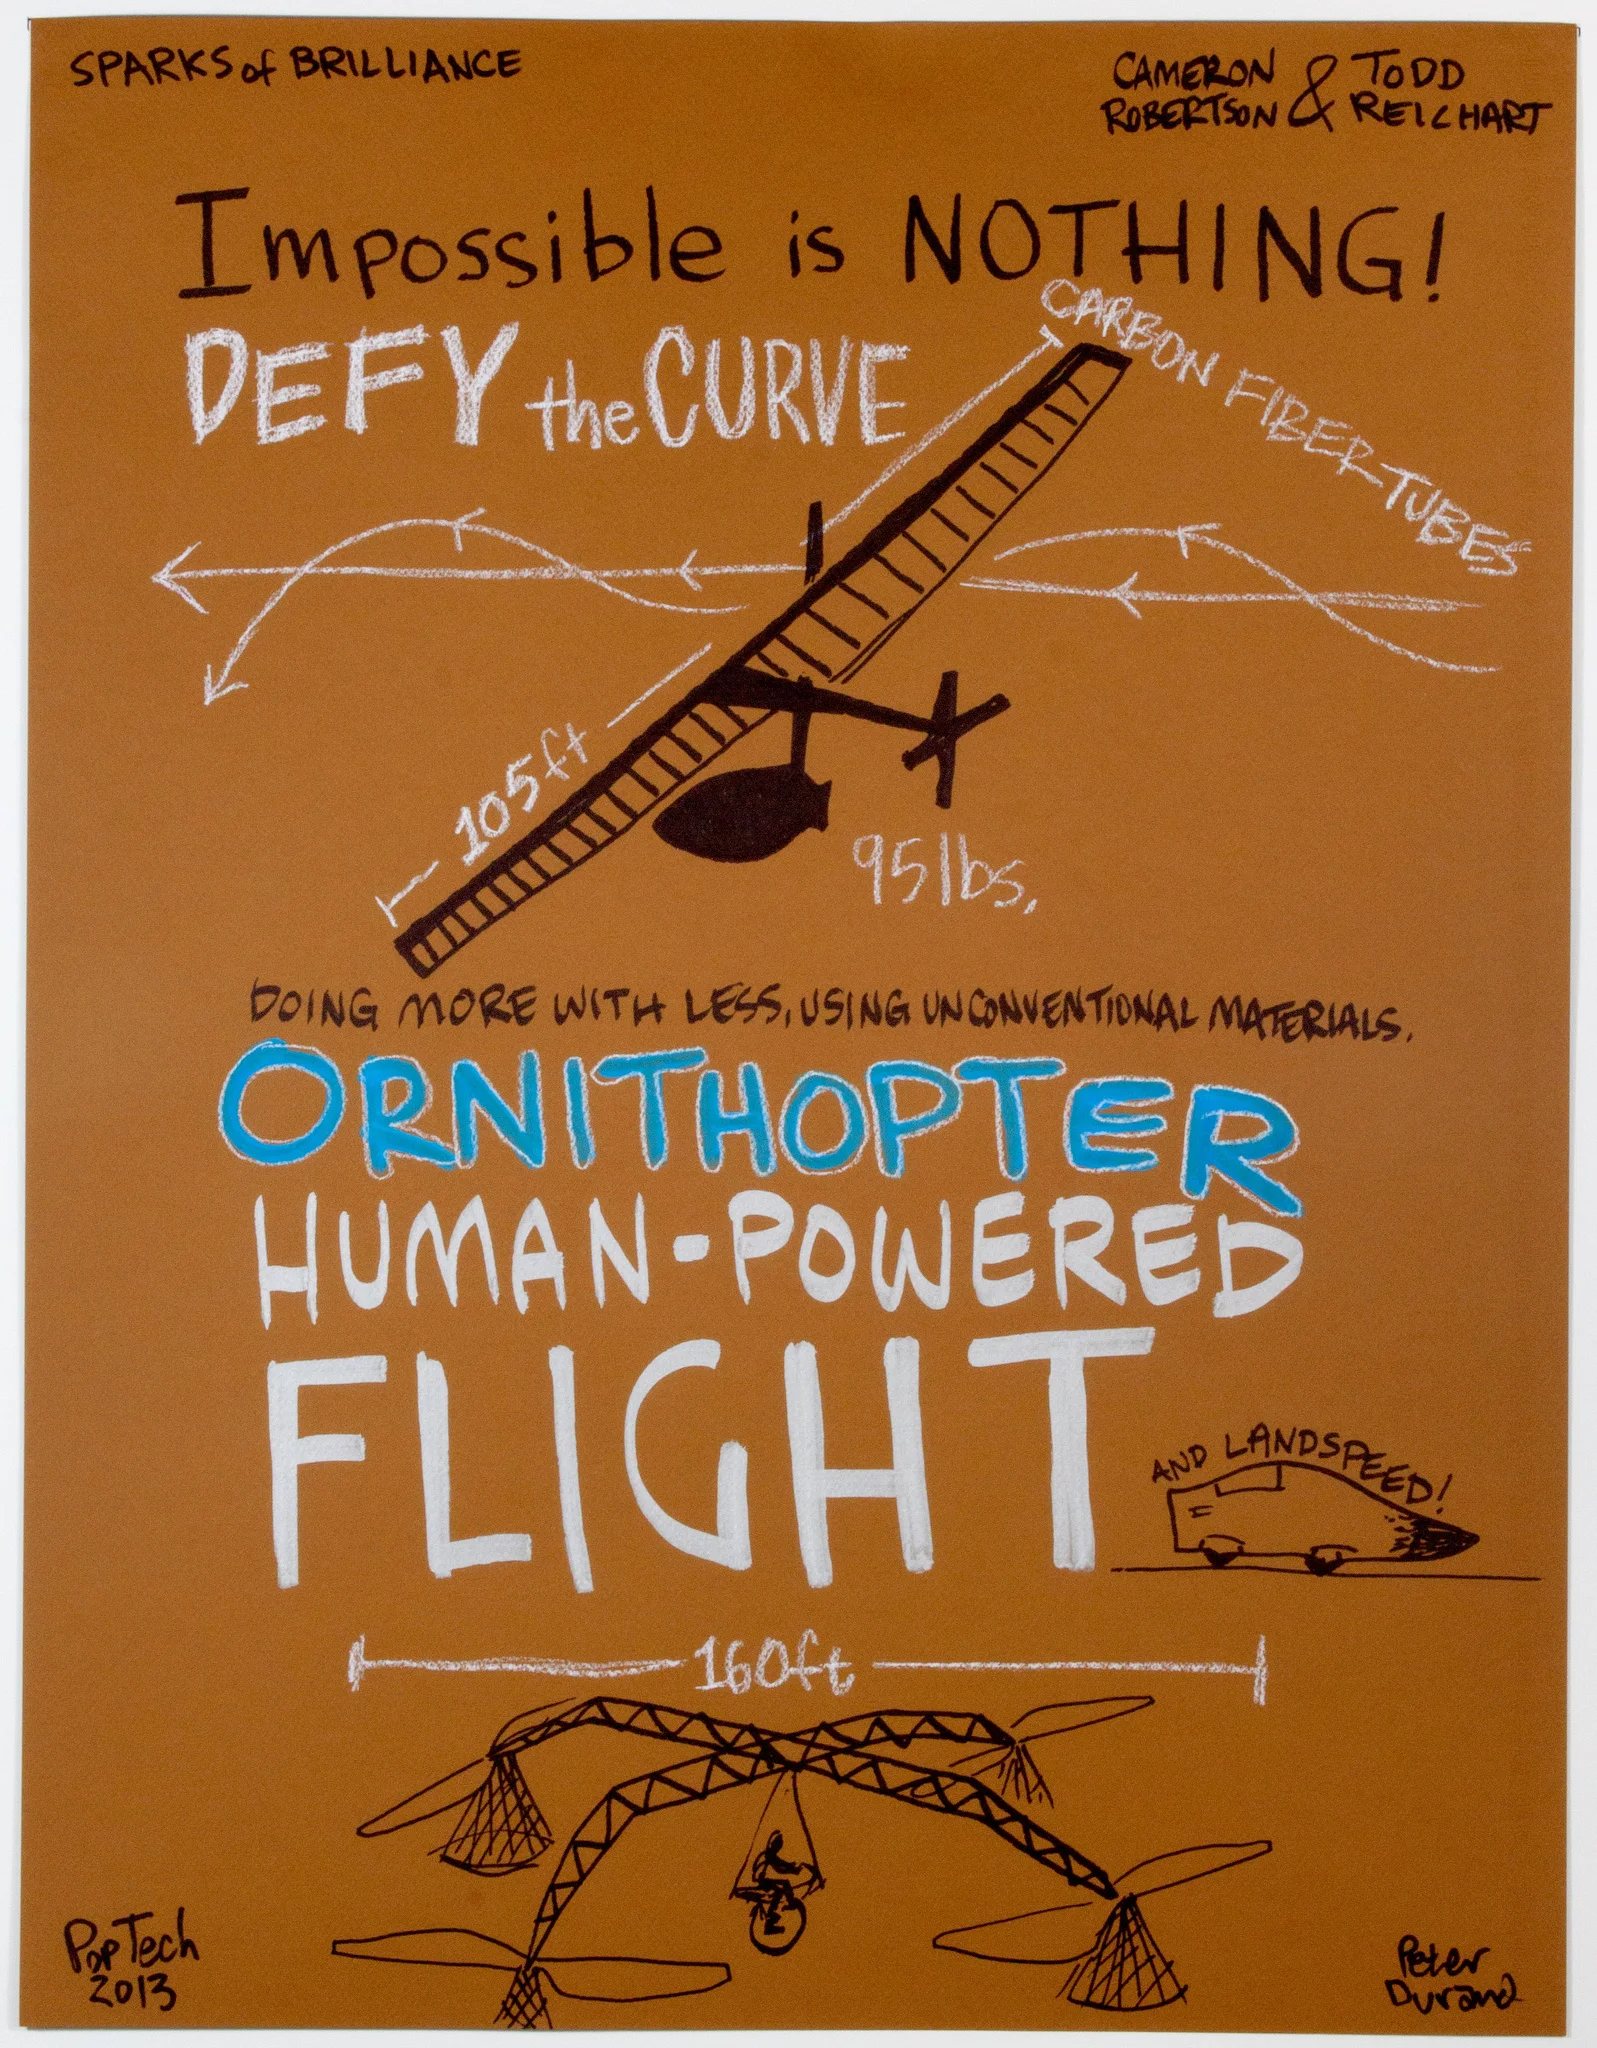 SPARKS of BRILLIANCE
CAMERON ROBERTSON & TODD REICHART
Impossible is NOTHING!
DEFY the CURVE
CARBON FIBER-TUBES
105ft
95lbs.
DOING MORE WITH LESS, USING UNCONVENTIONAL MATERIALS.
ORNITHOPTER
HUMAN-POWERED
FLIGHT
AND LANDSPEED!
160ft
PopTech
2013
Peter
Durand